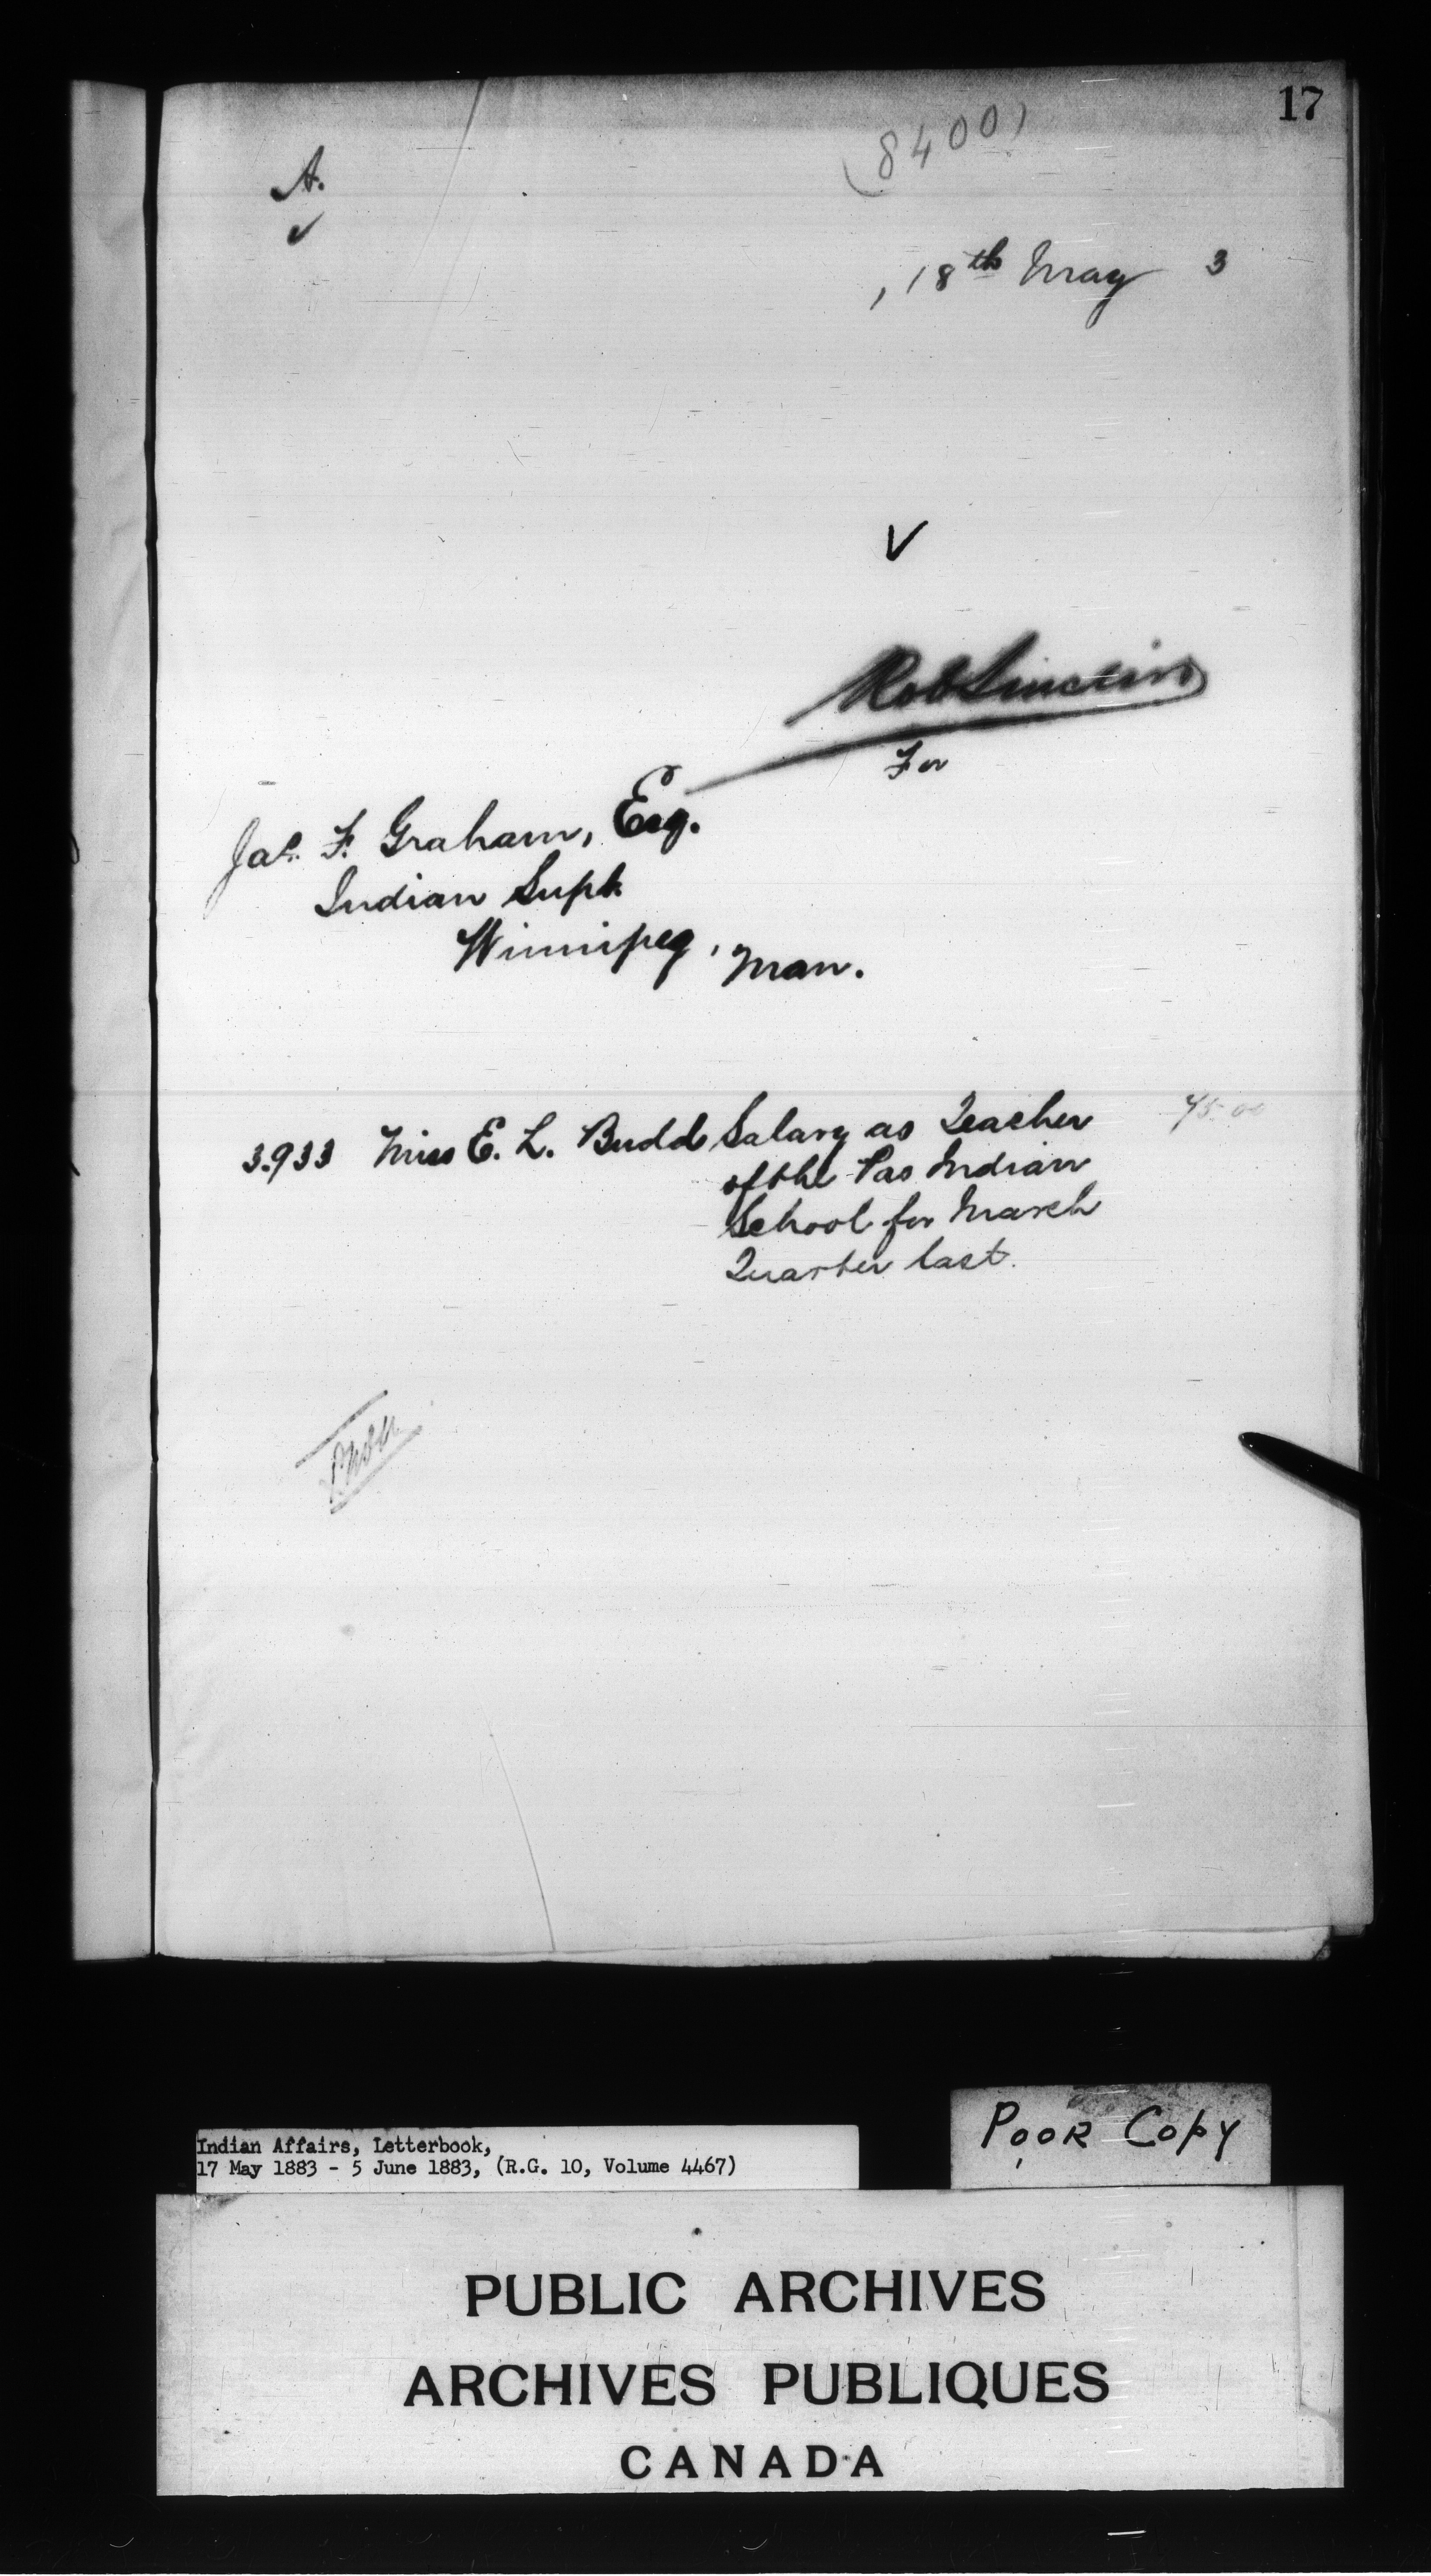 17
(8400)
A.
, 18th May 3
V
Rob Sinclair
For
Jas. F. Graham, Esq.
Indian Supt.
Winnipeg, Man.
3.933 Miss E. L. Budd Salary as Teacher 75.00
of the Pas Indian
School for March
Quarter last.
Indian Affairs, Letterbook,
17 May 1883 - 5 June 1883, (R.G. 10, Volume 4467)
POOR COPY
PUBLIC ARCHIVES
ARCHIVES PUBLIQUES
CANADA